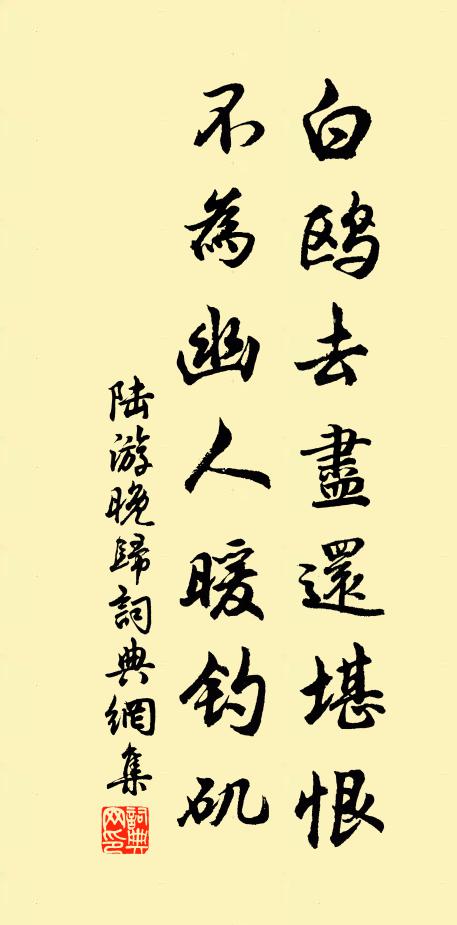 白鸥去盡還堪恨
不為幽人暖钓矶
陆游晚歸詞典網集
詞典网印